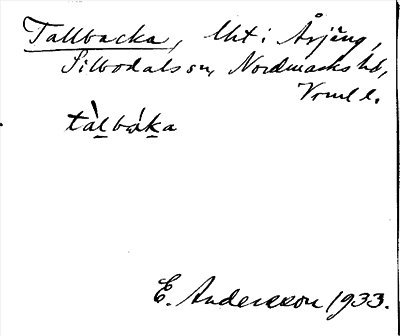 Tallbacka, lht i Årjäng,
Silbodals sn, Nordmarks hd,
Vrml l.
tàlbáka
E. Andersson 1933.